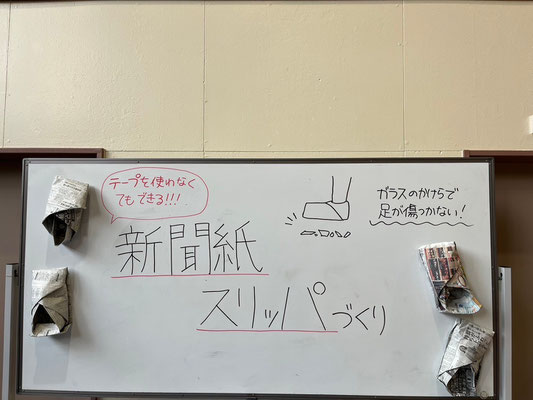 テープを使わなく
てもできる!!!
ガラスのかけらで
足が傷つかない!
新聞紙
スリッパづくり